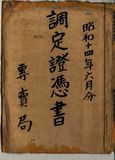 昭和十四年六月分
調定證憑書
專賣局